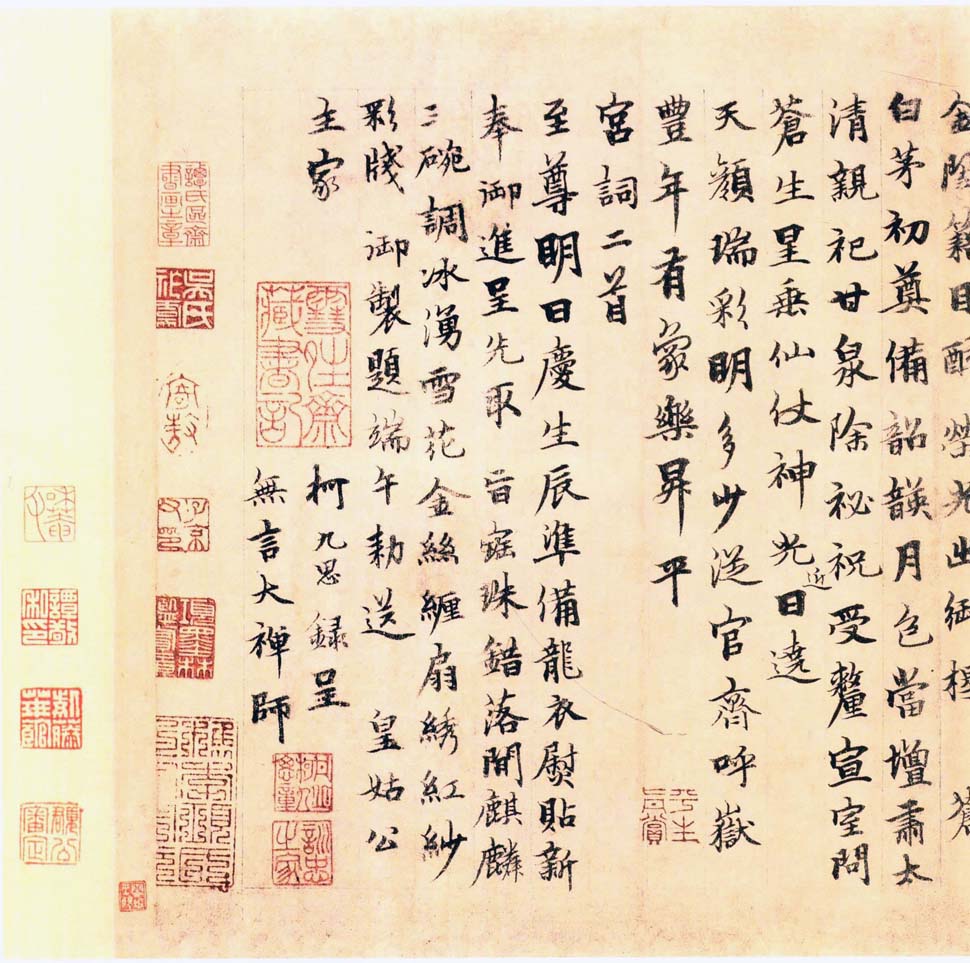 光出
白茅初奠備韶韺月色當壇肅太
清親祀甘泉除祕祝受釐宣室問
蒼生星垂仙仗神光近日遶
天顏瑞彩明多少從官齊呼嶽
豐年有象樂昇平
宮詞二首
至尊明日慶生辰準備龍衣熨貼新
奉 御進呈先取 旨珠錯落間麒麟
三碗調冰湧雪花金絲纏扇綉紅紗
彩牋 御製題端午勑送 皇姑公
主家
柯九思錄呈
無言大禪師
平生真賞
訓忠之家
譚氏區齋書畫之章
子京父印
項墨林鑑賞章